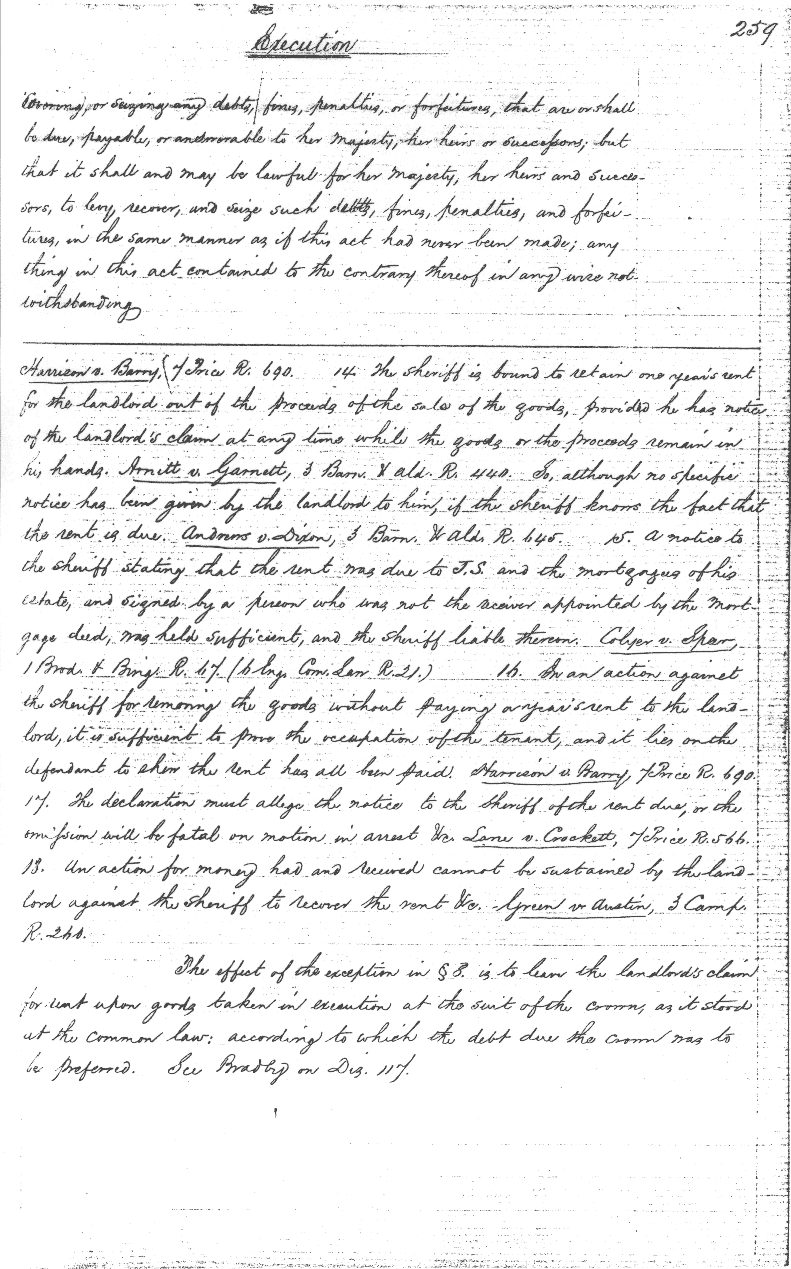 259
Execution
covering, or seizing any debts, fines, penalties, or forfeitures, that are or shall
be due, payable, or answerable to her majesty, her heirs or successors; but
that it shall and may be lawful for her majesty, her heirs and succes-
sors, to levy, recover, and seize such debts, fines, penalties, and forfei-
tures, in the same manner as if this act had never been made; any
thing in this act contained to the contrary thereof in any wise not-
withstanding
Harrison v. Barry, 7 Price R. 690. 14. The sheriff is bound to retain one year's rent
for the landlord out of the proceeds of the sale of the goods, provided he has notice
of the landlord's claim at any time while the goods or the proceeds remain in
his hands. Arnitt v. Garnett, 3 Barn. & Ald. R. 440. So, although no specific
notice has been given by the landlord to him, if the sheriff knows the fact that
the rent is due. Andrews v. Dixon, 3 Barn. & Ald. R. 645. 15. A notice to
the sheriff stating that the rent was due to J.S. and the mortgagees of his
estate, and signed by a person who was not the receiver appointed by the mort-
gage deed, was held sufficient, and the sheriff liable thereon. Colyer v. Speer,
1 Brod. & Bing. R. 67. (6 Eng. Com. Law R. 21.) 16. In an action against
the sheriff for removing the goods without paying a year's rent to the land-
lord, it is sufficient to prove the occupation of the tenant, and it lies on the
defendant to shew the rent has all been paid. Harrison v. Barry, 7 Price R. 690.
17. The declaration must allege the notice to the sheriff of the rent due, or the
omission will be fatal on motion in arrest &c. Lane v. Crockett, 7 Price R. 566.
18. An action for money had and received cannot be sustained by the land-
lord against the sheriff to recover the rent &c. Green v Austin, 3 Camp.
R. 260.
The effect of the exception in § 8. is to leave the landlord's claim
for rent upon goods taken in execution at the suit of the crown, as it stood
at the common law: according to which the debt due the crown was to
be preferred. See Bradby on Dis. 117.